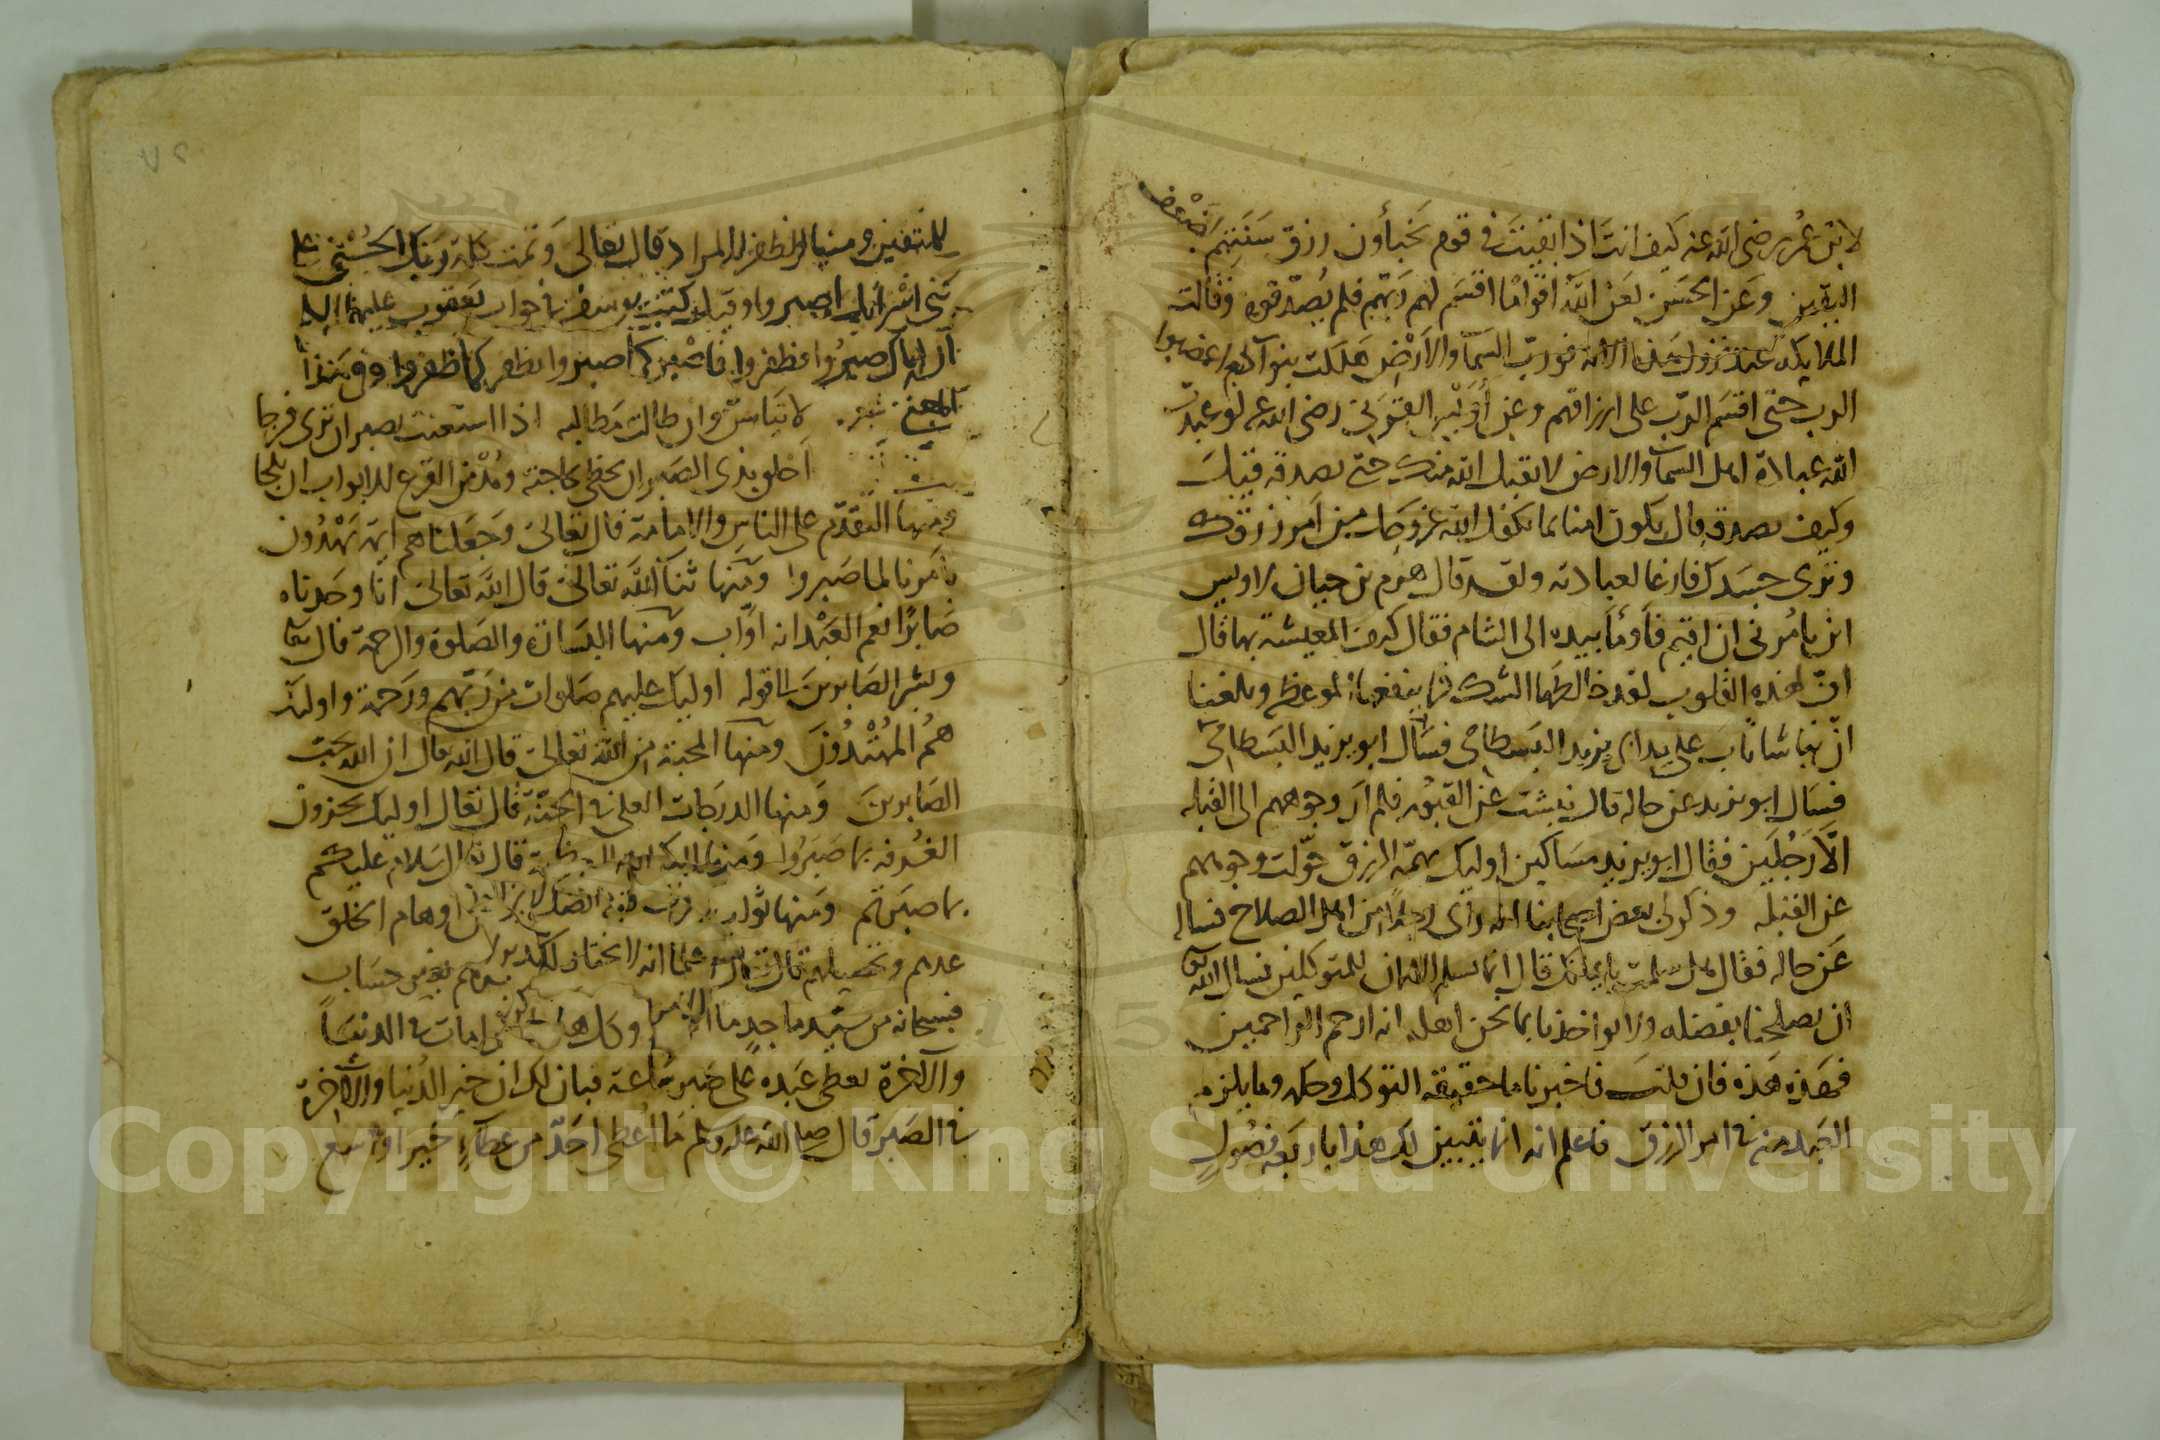 لابن عمر رضى الله عنه كيف انت اذا بقيت فى قوم يخبأون رزق سنتهم
اليقين وعن الحسن لعن الله اقواما اقسم لهم ربهم فلم يصدقوه وقالت
الملايكة عند نزول هذه الاية فورب السما والارض هلكت بنو آدم اغضبوا
الرب حتى اقسم لهم على ارزاقهم وعن أويس القرنى رضى الله عنه لو عبدت
الله عبادة اهل السموات والارض لا يقبل الله منك حتى تصدقه قيل
وكيف تصدقه قال تكون امنا بما تكفل الله عز وجل من امر رزقك
وترى جسدك فارغا لعبادته ولقد قال هرم بن حيان لاويس
اين تامرنى ان اقيم فأومأ بيده الى الشام فقال كيف المعيشة بها قال
اف لهذه القلوب لقد خالطها الشك فما ينفعها الموعظة وبلغنا
ان نباشا تاب على يد ابى يزيد البسطامى فسأل ابو يزيد البسطامى
فسال ابو يزيد عن حاله قال نبشت عن القبور فلم ار وجوههم الى القبلة
الا رجلين فقال ابو يزيد مساكين اوليك تهمة الرزق حولت وجوههم
عن القبلة وذكر لى بعض اصحابنا انه رأى رجلا من اهل الصلاح فساله
عن حاله فقال هل سلمت بايمانك قال انما يسلم الايمان للمتوكلين نسال الله
ان يصلحنا بفضله ولا يواخذنا بما نحن اهله انه ارحم الراحمين
فهذه هذه فان قلت فاخبرنا ما حقيقة التوكل وحكمه وما يلزم
العبد منه فى امر الرزق فاعلم انه انما يتبين لك هذا باربعة فصول
للمتقين ومنها الظفر بالمراد قال تعالى وتمت كلمة ربك الحسنى على
بنى اسرايل بما صبروا وقيل كتب يوسف فى جواب يعقوب عليهما السلام
ان اباك صبروا فظفروا فاصبر كما صبروا تظفر كما ظفروا وفى هذا
المعنى شعر لا تياسن وان طالت مطالبه اذا استعنت بصبر ان ترى فرجا
اخلق بذى الصبر ان يحظى بحاجته ومدمن القرع للابواب ان يلجا
ومنها التقدم على الناس والامامة قال تعالى وجعلناهم ايمة يهدون
بامرنا لما صبروا ومنها ثنا الله تعالى قال الله تعالى انا وجدناه
صابرا نعم العبد انه اواب ومنها البشارة والصلوة والرحمة قال تعالى
وبشر الصابرين الى قوله اوليك عليهم صلوات من ربهم ورحمة واوليك
هم المهتدون ومنها المحبة من الله تعالى قال الله تعالى ان الله يحب
الصابرين ومنها الدرجات العلى فى الجنة قال تعالى اوليك يجزون
الغرفة بما صبروا ومنها الكرامة قال تعالى سلام عليكم
بما صبرتم ومنها ثواب اوهام الخلق
بغير حساب
فسبحانه من سيد ماجد ما وكل هذه الكرامات فى الدنيا
والاخرة يعطى عبده على صبر ساعة فبان لك ان خير الدنيا والاخرة
فى الصبر قال صلى الله عليه وسلم ما اعطى احد من عطاء خير اوسع
Copyright © King Saud University